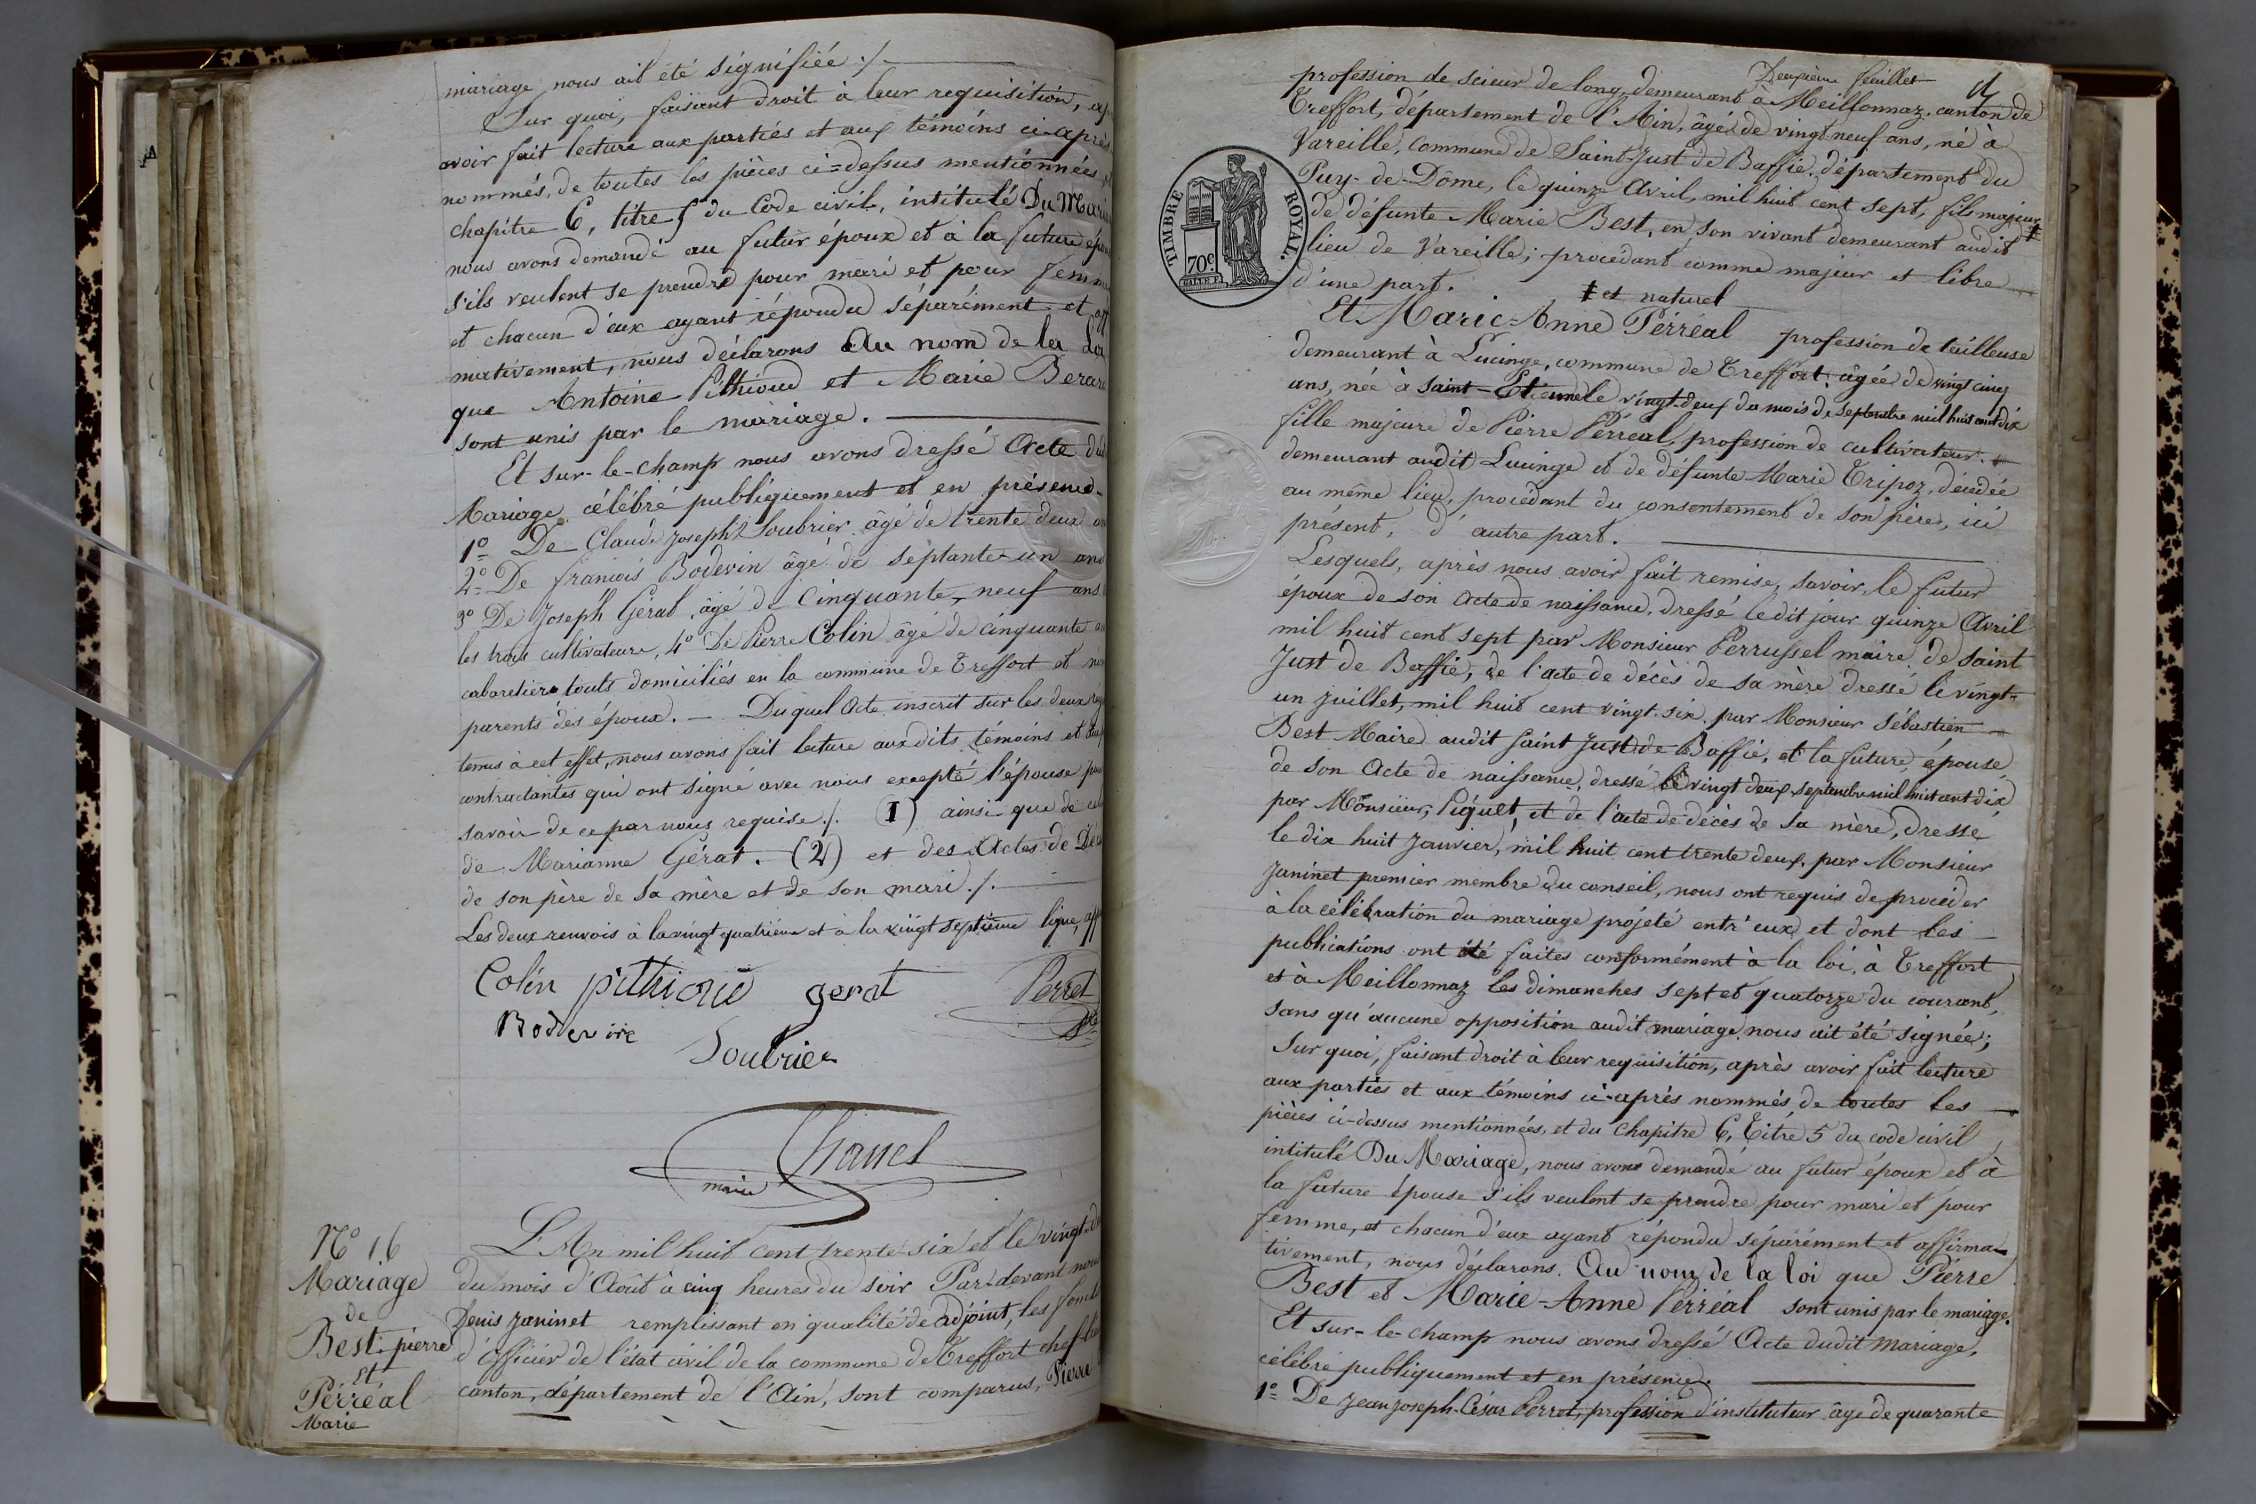 mariage nous ait été signifiée ./.
Sur quoi, faisant droit à leur requisition,
avoir fait lecture aux parties et aux témoins ci-après
nommés, de toutes les pièces ci-dessus mentionnées
chapitre 6, titre 5 du Code civil, intitulé Du Mari
nous avons demandé au futur époux et à la future épou
s'ils veulent se prendre pour mari et pour femme
et chacun d'eux ayant répondu séparément et aff
mativement, nous déclarons Au nom de la Loi
que Antoine Pithioud et Marie Berard
sont unis par le mariage.
Et sur-le-champ nous avons dressé Acte dud
Mariage célébré publiquement et en présence
1º De Claude Joseph Soubrier âgé de trente deux an
2º De francois Bodevin âgé de septante-un ans
3º De Joseph Gérat, âgé de Cinquante-neuf ans
les trois cultivateurs, 4º De Pierre Colin âgé de cinquante
cabaretier touts domiciliés en la commune de Treffort et non
parents des époux. — Duquel Acte inscrit sur les deux reg
tenus à cet effet, nous avons fait lecture auxdits témoins et aux
contractantes qui ont signé avec nous excepté l'épouse pour
savoir de ce par nous requise ./. (1) ainsi que de celui
de Marianne Gérat. (2) et des Actes de Déc
de son père de sa mère et de son mari ./.
Les deux renvois à la vingt quatrième et à la vingt septième ligne, app
Colin pithioud gerat Perret
Bodevin
Soubrier
Chanel
maire
Nº 16
Mariage
de
Best pierre
Et
Pérréal
Marie
L'An mil huit cent trente-six et le vingt-
du mois d'Août à cinq heures du soir Pardevant nous
Denis Janinet remplissant en qualité de adjoint, les foncti
d'officier de l'état civil de la commune de Treffort chef-lieu
canton, département de l'Ain, sont comparus, Pierre
Deuxième feuillet
profession de scieur de long, demeurant à Meillonnaz, canton de
Treffort, département de l'Ain, âgé de vingt neuf ans, né à
Vareille, Commune de Saint-Just de Baffie, département du
Puy-de-Dôme, le quinze Avril, mil huit cent sept, fils majeur ‡
de défunte Marie Best, en son vivant demeurant audit
lieu de Vareille; procédant comme majeur et libre
d'une part. ‡ et naturel
TIMBRE ROYAL.
70c
Et Marie-Anne Pérréal profession de tailleuse
demeurant à Lucinge, commune de Treffort, âgée de vingt cinq
ans, née à Saint-Etienne le vingt-deux du mois de septembre mil huit cent dix
fille majeure de Pierre Pérréal, profession de cultivateur
demeurant audit Lucinge et de défunte Marie Tripoz, décédée
au même lieu, procédant du consentement de son père, ici
présent, d'autre part.
Lesquels, après nous avoir fait remise, savoir, le futur
époux de son acte de naissance, dressé ledit jour quinze Avril
mil huit cent sept par Monsieur Perrussel maire de Saint
Just de Baffie, de l'acte de décès de sa mère dressé le vingt-
un juillet, mil huit cent vingt-six par Monsieur Sébastien
Best Maire audit Saint Just de Baffie, et la future épouse
de son Acte de naissance, dressé le vingt deux septembre mil huit cent dix
par Monsieur, Piquet, et de l'acte de décès de sa mère, dressé
le dix huit Janvier, mil huit cent trente deux, par Monsieur
Janinet premier membre du conseil, nous ont requis de procéder
à la célébration du mariage projeté entr'eux et dont les
publications ont été faites conformément à la loi, à Treffort
et à Meillonnaz les dimanches sept et quatorze du courant,
sans qu'aucune opposition audit mariage nous ait été signée;
Sur quoi, faisant droit à leur requisition, après avoir fait lecture
aux parties et aux témoins ci-après nommés, de toutes les
pièces ci-dessus mentionnées, et du chapitre 6, Titre 5 du code civil
intitulé Du Mariage, nous avons demandé au futur époux et à
la future épouse s'ils veulent se prendre pour mari et pour
femme, et chacun d'eux ayant répondu séparément et affirma
tivement, nous déclarons. Au nom de la loi que Pierre
Best et Marie-Anne Pérréal sont unis par le mariage.
Et sur-le-champ nous avons dressé Acte dudit mariage,
célébré publiquement et en présence.
1º De Jean Joseph César Perret, profession d'instituteur âgé de quarante